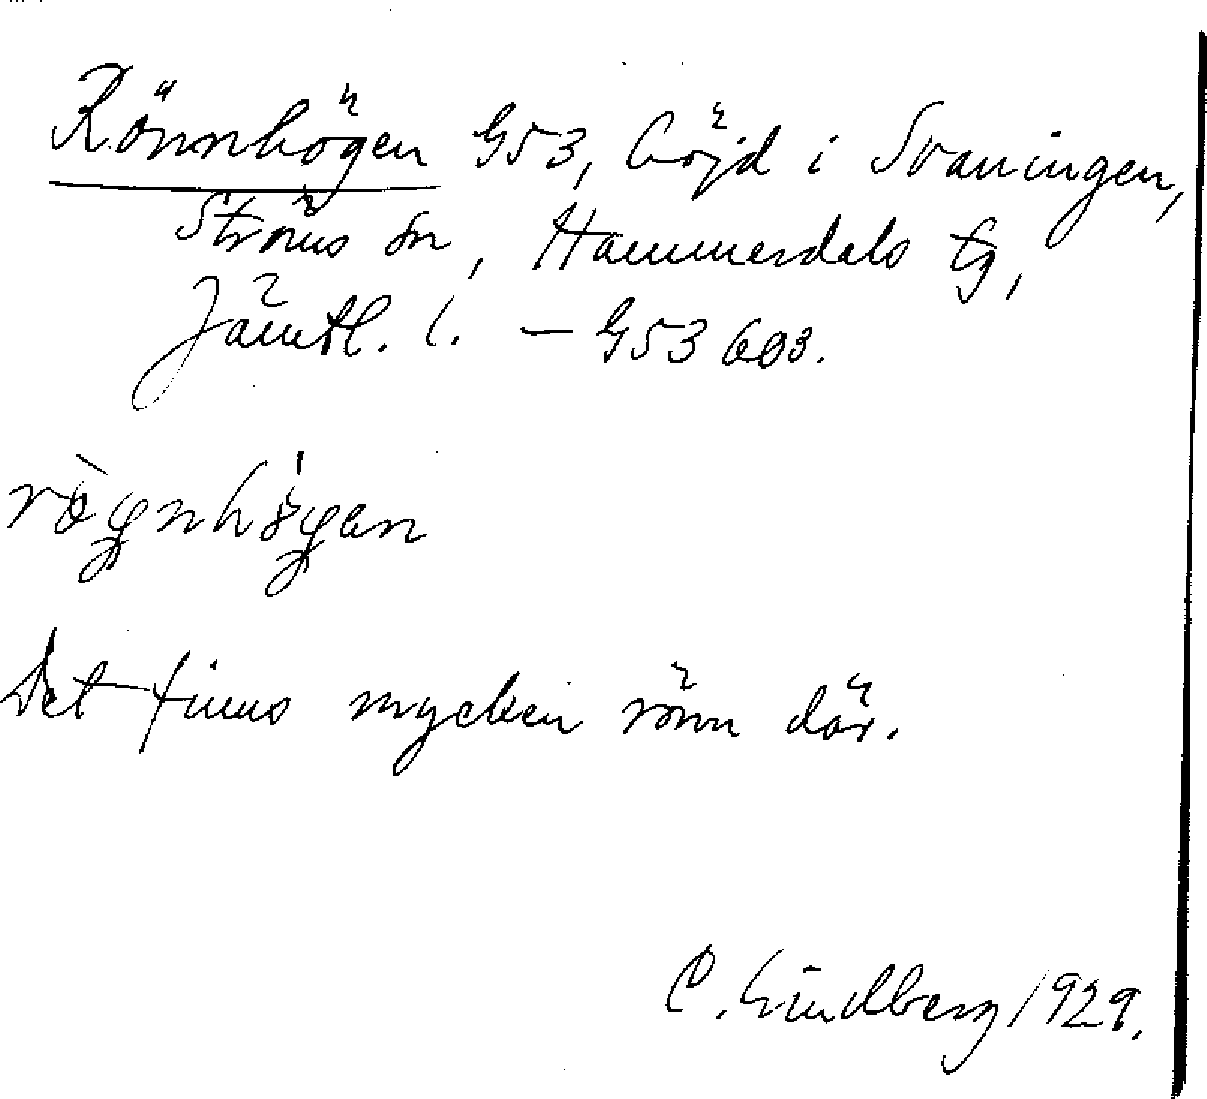 Rönnhögen G53, höjd i Svaningen,
Ströms sn, Hammerdals tg,
Jämtl. l. – G53 603.
Det finns mycken rönn där.
C. Lindberg 1929.